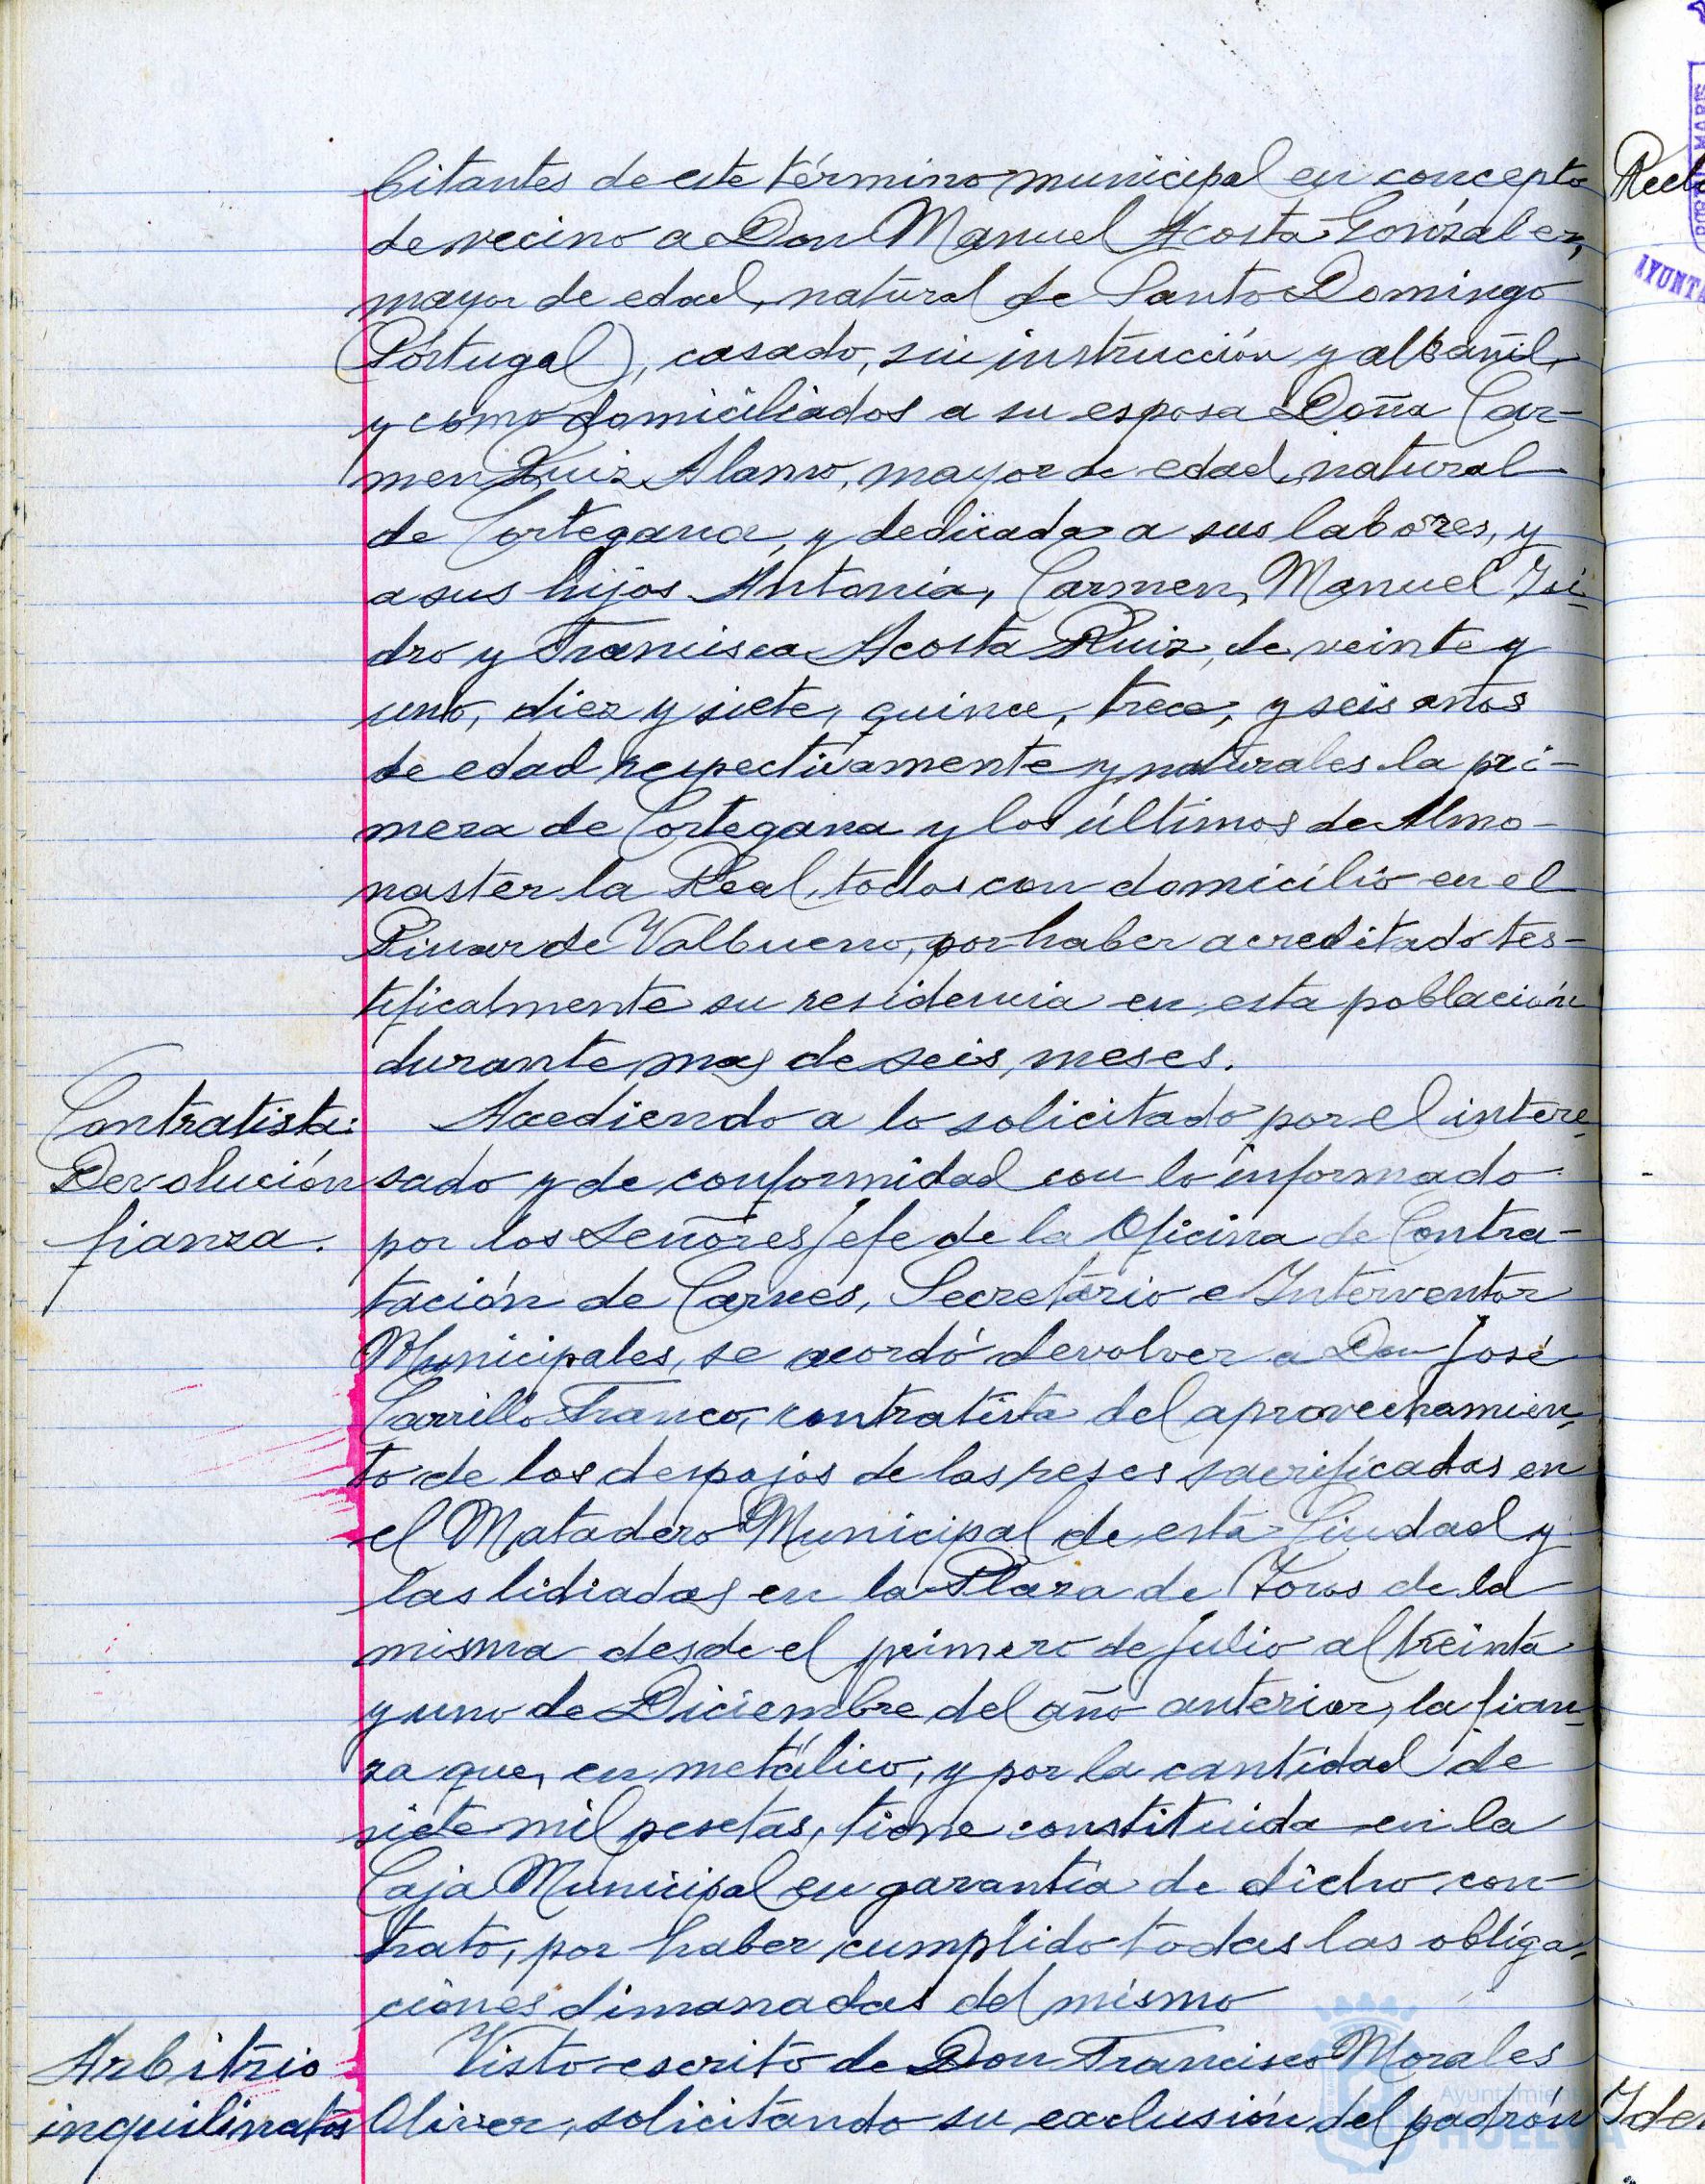 bitantes de este término municipal en concepto
de vecino a Don Manuel Acosta González,
mayor de edad, natural de Santo Domingo
(Pórtugal), casado, sin instrucción y albañil,
y como domiciliados a su esposa Doña Car-
men Ruiz Alamo, mayor de edad, natural
de Cortegana, y dedicada a sus labores, y
a sus hijos Antonia, Carmen, Manuel Isi-
dro y Francisca Acosta Ruiz, de veinte y
uno, diez y siete, quince, trece, y seis años
de edad respectivamente y naturales la pri-
mera de Cortegana y los últimos de Almo-
naster la Real, todos con domicilio en el
Pinar de Valbueno, por haber acreditado tes-
tificalmente su residencia en esta población
durante mas de seis meses.
Contratista: Accediendo a lo solicitado por el intere-
Devolución sado y de conformidad con lo informado
fianza. por los Señores Jefe de la Oficina de Contra-
tación de Carnes, Secretario e Interventor
Municipales, se acordó devolver a Don José
Carrillo Franco, contratista del aprovechamien-
to de los despojos de las reses sacrificadas en
el Matadero Municipal de esta Ciudad y
las lidiadas en la Plaza de Toros de la
misma desde el primero de Julio al treinta
y uno de Diciembre del año anterior, la fian-
za que, en metálico, y por la cantidad de
siete mil pesetas, tiene constituida en la
Caja Municipal en garantía de dicho con-
trato, por haber cumplido todas las obliga-
ciones dimanadas del mismo
Arbitrio Visto escrito de Don Francisco Morales
inquilinatos Oliver, solicitando su exclusión del padrón
Ayuntamiento
HUELVA